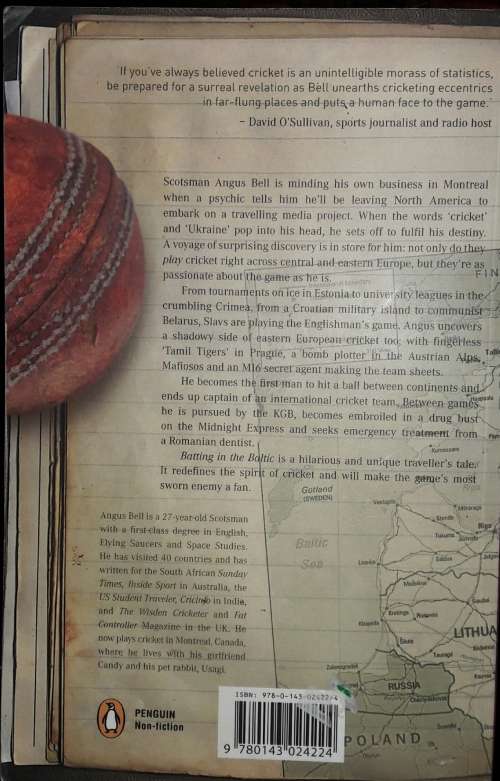 'If you've always believed cricket is an unintelligible morass of statistics,
be prepared for a surreal revelation as Bell unearths cricketing eccentrics
in far-flung places and puts a human face to the game.'
– David O'Sullivan, sports journalist and radio host
Scotsman Angus Bell is minding his own business in Montreal
when a psychic tells him he'll be leaving North America to
embark on a travelling media project. When the words 'cricket'
and 'Ukraine' pop into his head, he sets off to fulfil his destiny.
A voyage of surprising discovery is in store for him: not only do they
play cricket right across central and eastern Europe, but they're as
passionate about the game as he is.
From tournaments on ice in Estonia to university leagues in the
crumbling Crimea, from a Croatian military island to communist
Belarus, Slavs are playing the Englishman's game. Angus uncovers
a shadowy side of eastern European cricket too, with fingerless
'Tamil Tigers' in Prague, a bomb plotter in the Austrian Alps,
Mafiosos and an MI6 secret agent making the team sheets.
He becomes the first man to hit a ball between continents and
ends up captain of an international cricket team. Between games
he is pursued by the KGB, becomes embroiled in a drug bust
on the Midnight Express and seeks emergency treatment from
a Romanian dentist.
Batting in the Baltic is a hilarious and unique traveller's tale.
It redefines the spirit of cricket and will make the game's most
sworn enemy a fan.
Angus Bell is a 27-year-old Scotsman
with a first-class degree in English,
Flying Saucers and Space Studies.
He has visited 40 countries and has
written for the South African Sunday
Times, Inside Sport in Australia, the
US Student Traveler, Cricinfo in India,
and The Wisden Cricketer and Fat
Controller Magazine in the UK. He
now plays cricket in Montreal, Canada,
where he lives with his girlfriend
Candy and his pet rabbit, Usagi.
FIN
Gotland
(SWEDEN)
Baltic
Sea
Ventspils
Riga
Liepaja
Klaipeda
LITHUA
RUSSIA
POLAND
PENGUIN
Non-fiction
ISBN: 978-0-143-02422-4
9 780143 024224